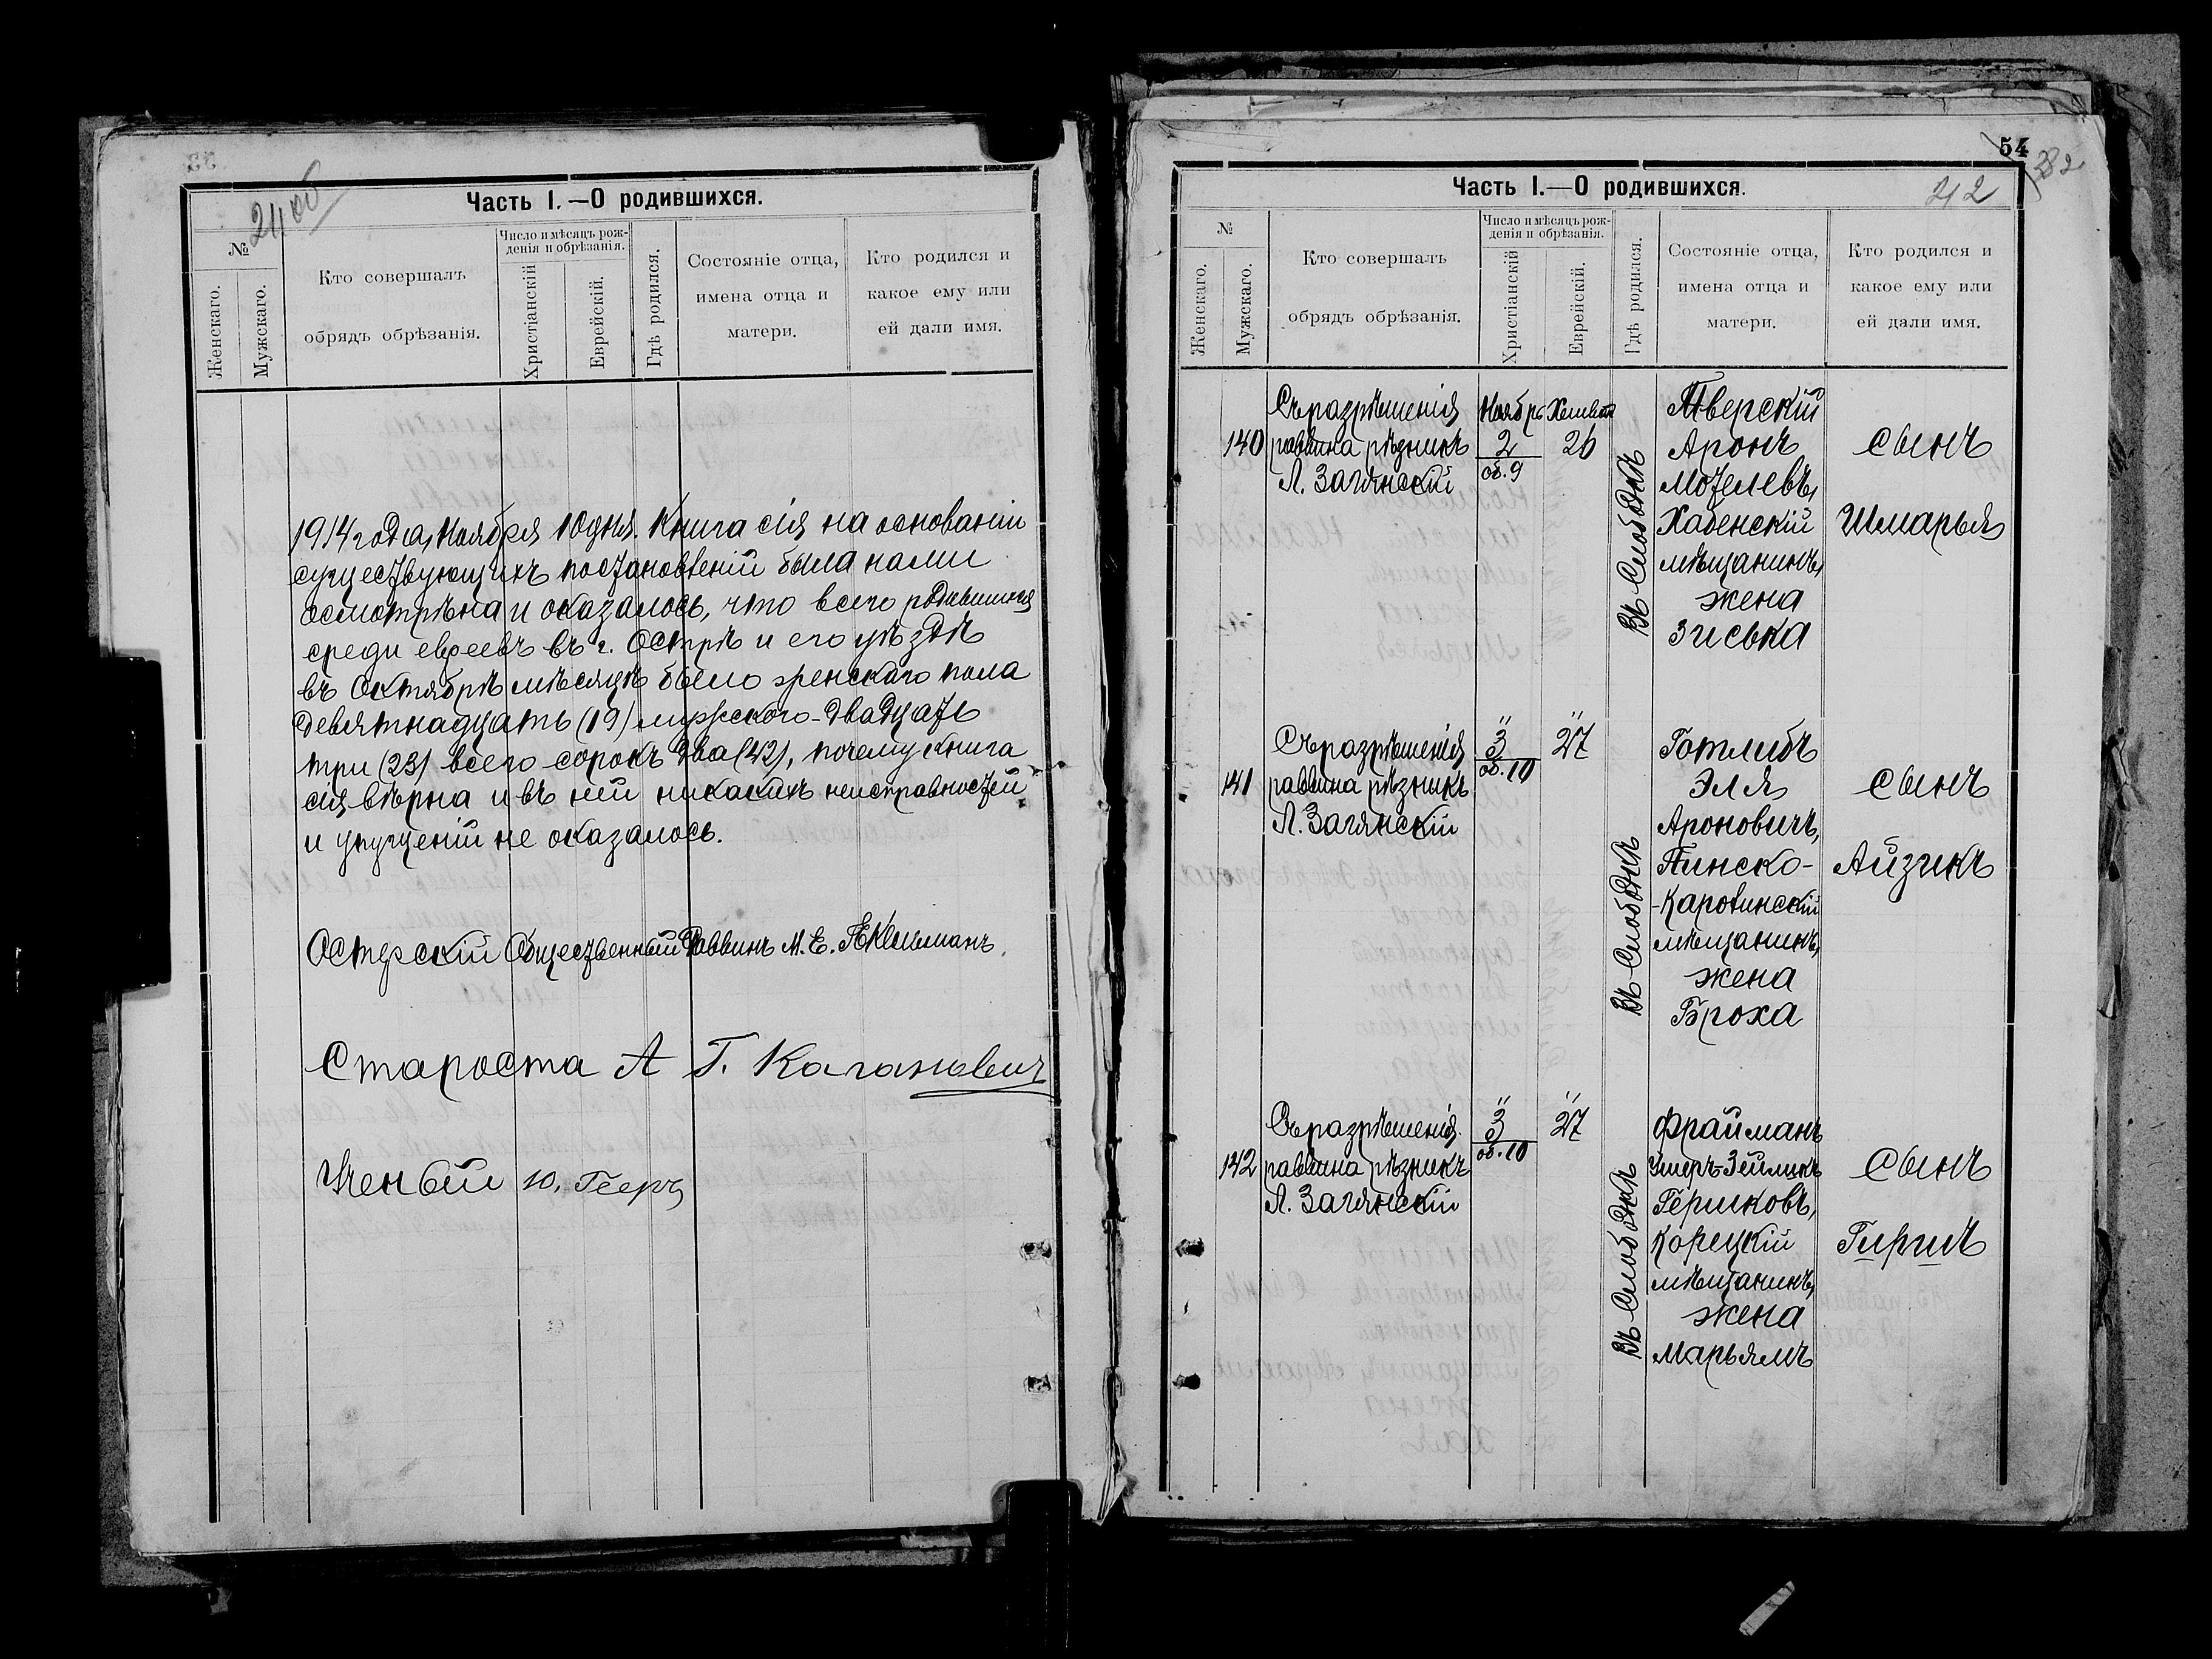 24 об
Часть I.—О родившихся.
№
Женскаго.
Мужскаго.
Кто совершалъ
обрядъ обрѣзанія.
Число и мѣсяцъ рож-
денія и обрѣзанія.
Христіанскій
Еврейскій.
Гдѣ родился.
Состояніе отца,
имена отца и
матери.
Кто родился и
какое ему или
ей дали имя.
1914 года, Ноября 10 дня. Книга сія на основаніи
существующихъ постановленій была нами
осмотрѣна и оказалось, что всего родившихся
среди евреевъ въ г. Острѣ и его уѣздѣ
въ Октябрѣ мѣсяцѣ было женскаго пола
девятнадцать (19) мужского - двадцать
три (23) всего сорокъ два (42), почему книга
сія вѣрна и въ ней никакихъ неисправностей
и упущеній не оказалось.
Остерскій Общественный Раввинъ М. Е.
Староста А Г. Кагановичъ
Ученый Ю.
54
382
212
Часть I.—О родившихся.
№
Женскаго.
Мужскаго.
Кто совершалъ
обрядъ обрѣзанія.
Число и мѣсяцъ рож-
денія и обрѣзанія.
Христіанскій
Еврейскій.
Гдѣ родился.
Состояніе отца,
имена отца и
матери.
Кто родился и
какое ему или
ей дали имя.
140
Съ разрѣшенія
раввина рѣзникъ
Л. Загянскій
Ноябрь
2
об. 9
Хешванъ
26
Въ Слободкѣ
Тверскій
Аронъ
Мотелевъ,
Хабенскій
мѣщанинъ,
жена
Зиська
сынъ
Шмарья
141
Съ разрѣшенія
раввина рѣзникъ
Л. Загянскій
"
3
об. 10
"
27
Въ Слободкѣ
Готлибъ
Эля
Ароновичъ,
Пинско-
-Каролинскій
мѣщанинъ,
жена
Броха
сынъ
Айзикъ
142
Съ разрѣшенія
раввина рѣзникъ
Л. Загянскій
"
3
об. 10
"
27
Въ Слободкѣ
Фрайманъ
Ушеръ-Зейликъ
Гершковъ,
Корецкій
мѣщанинъ,
жена
Марьямъ
сынъ
Гиршъ